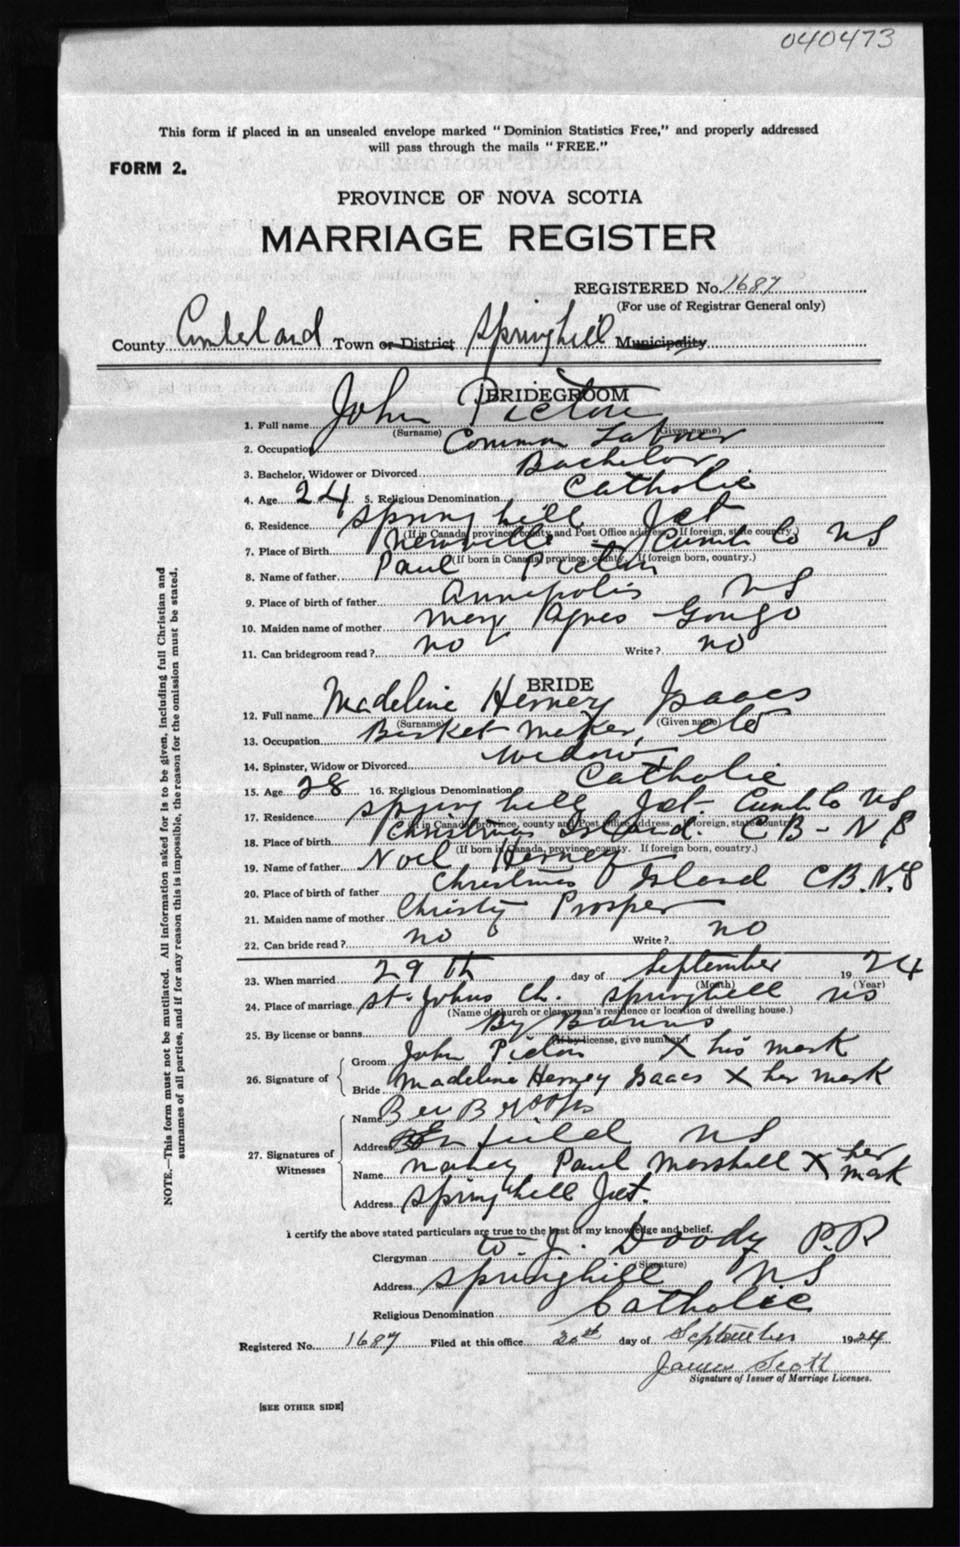 040473
This form if placed in an unsealed envelope marked "Dominion Statistics Free," and properly addressed
will pass through the mails "FREE."
FORM 2.
PROVINCE OF NOVA SCOTIA
MARRIAGE REGISTER
REGISTERED No. 1687
(For use of Registrar General only)
County Cumberland Town or District Springhill Municipality
BRIDEGROOM
1. Full name John Picton
(Surname) (Given name)
2. Occupation Common Laborer
3. Bachelor, Widower or Divorced Bachelor
4. Age 24 5. Religious Denomination Catholic
6. Residence Springhill Jct
(If in Canada, province, county and Post Office address. If foreign, state country.)
7. Place of Birth Newville Cumb Co NS
(If born in Canada, province, county. If foreign born, country.)
8. Name of father Paul Picton
9. Place of birth of father Annapolis NS
10. Maiden name of mother Mary Agnes Gougo
11. Can bridegroom read? no Write? no
BRIDE
12. Full name Madeline Herney Isaacs
(Surname) (Given name)
13. Occupation Basket maker, etc
14. Spinster, Widow or Divorced Widow
15. Age 28 16. Religious Denomination Catholic
17. Residence Springhill Jct- Cumb Co NS
(If in Canada, province, county and Post Office address. If foreign, state country.)
18. Place of birth Christmas Island. CB - NS
(If born in Canada, province, county. If foreign born, country.)
19. Name of father Noel Herney
20. Place of birth of father Christmas Island CB. N.S
21. Maiden name of mother Christy Prosper
22. Can bride read? no Write? no
23. When married 29th day of September 1924
(Month) (Year)
24. Place of marriage St. Johns Ch. Springhill NS
(Name of church or clergyman's residence or location of dwelling house.)
25. By license or banns By Banns
(If by license, give number)
26. Signature of
Groom John Picton X his mark
Bride Madeline Herney Isaacs X her mark
27. Signatures of Witnesses
Name Ben Brooks
Address Enfield NS
Name Nancy Paul Marshall X her mark
Address Springhill Jct.
I certify the above stated particulars are true to the best of my knowledge and belief.
Clergyman W. J. Doody P.P.
(Signature)
Address Springhill NS
Religious Denomination Catholic
Registered No. 1687 Filed at this office 30th day of September 1924
James Scott
Signature of Issuer of Marriage Licenses.
[SEE OTHER SIDE]
NOTE.—This form must not be mutilated. All information asked for is to be given, including full Christian and
surnames of all parties, and if for any reason this is impossible, the reason for the omission must be stated.